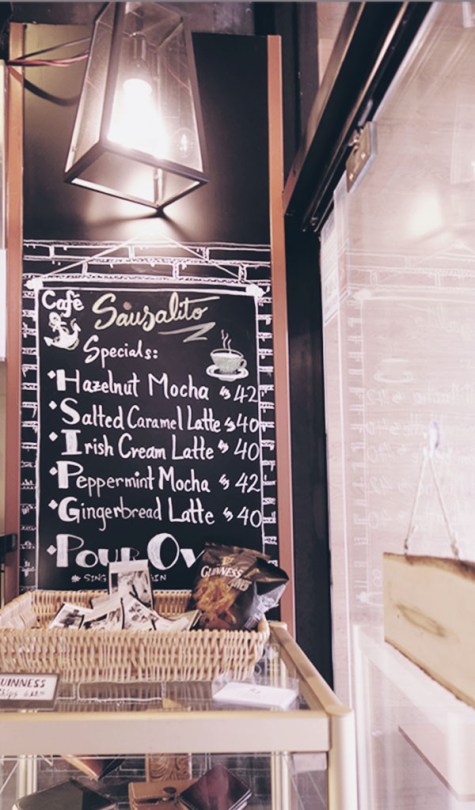 Café Sausalito
Specials:
Hazelnut Mocha $42
Salted Caramel Latte $40
Irish Cream Latte $40
Peppermint Mocha $42
Gingerbread Latte $40
POUR OV
SING
GUINNESS
UINNESS